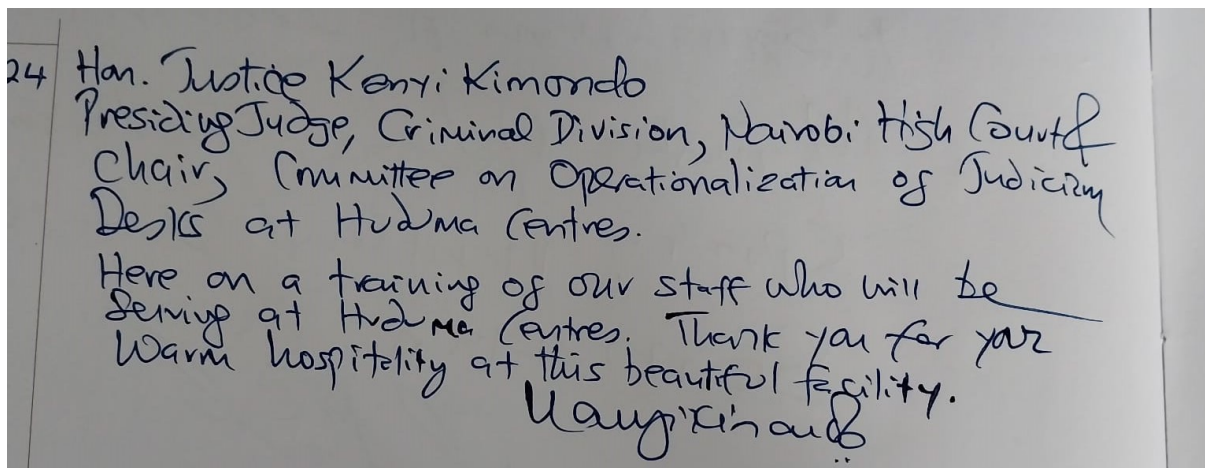 24 Hon. Justice Kanyi Kimondo
Presiding Judge, Criminal Division, Nairobi High Court &
Chair, Committee on Operationalization of Judiciary
Desks at Huduma Centres.
Here on a training of our staff who will be
serving at Huduma Centres. Thank you for your
warm hospitality at this beautiful facility.
KanyiKimondo